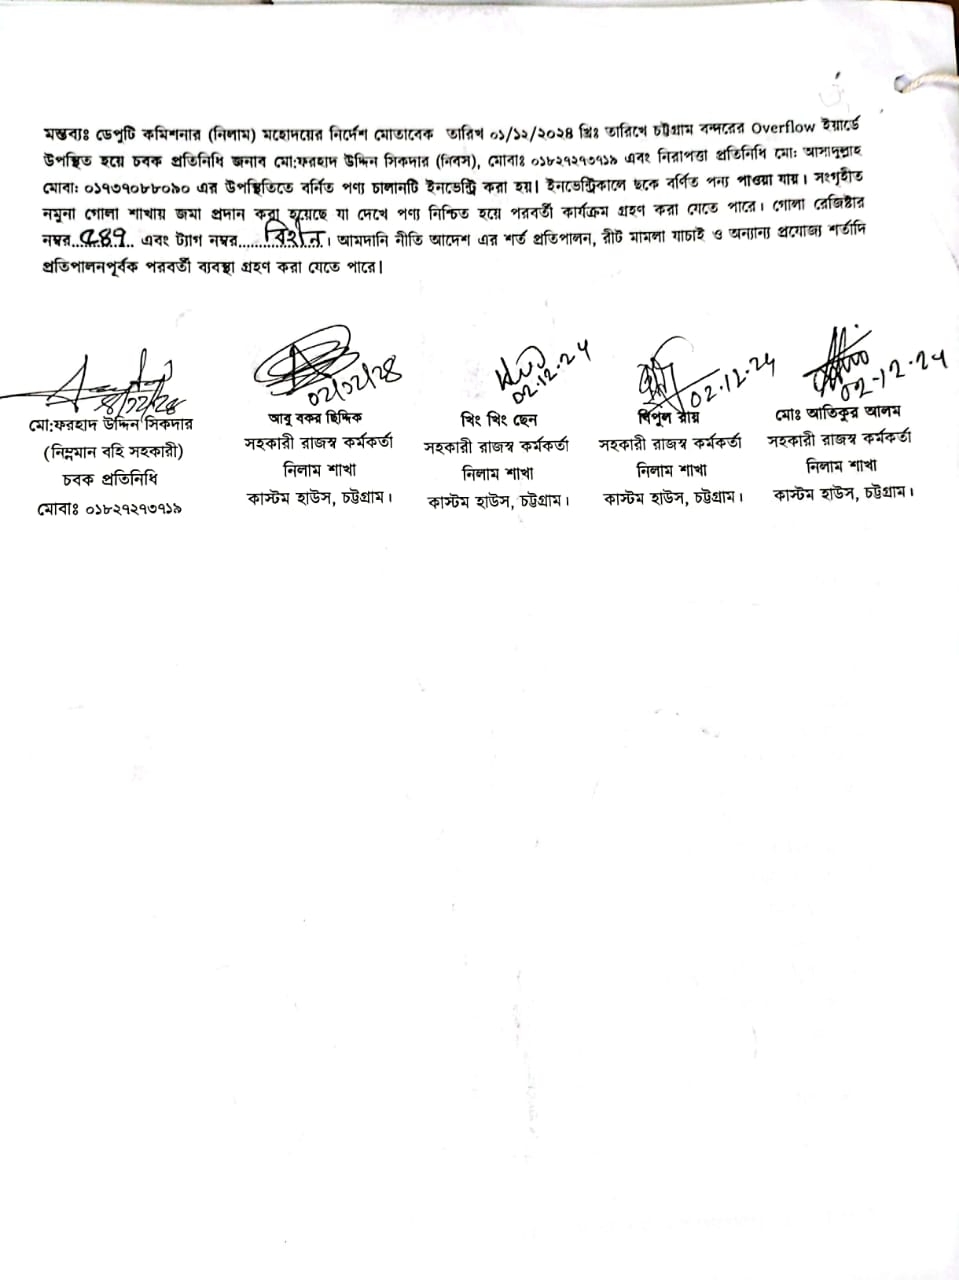 মন্তব্যঃ ডেপুটি কমিশনার (নিলাম) মহোদয়ের নির্দেশ মোতাবেক তারিখ ০১/১২/২০২৪ খ্রিঃ তারিখে চট্টগ্রাম বন্দরের Overflow ইয়ার্ডে
উপস্থিত হয়ে চবক প্রতিনিধি জনাব মো:ফরহাদ উদ্দিন সিকদার (নিবস), মোবাঃ ০১৮২৭২৭৩৭১৯ এবং নিরাপত্তা প্রতিনিধি মো: আসাদুল্লাহ
মোবা: ০১৭৩৭০৮৮০৯০ এর উপস্থিতিতে বর্নিত পণ্য চালানটি ইনভেন্ট্রি করা হয়। ইনভেন্ট্রিকালে ছকে বর্ণিত পন্য পাওয়া যায়। সংগৃহীত
নমুনা গোলা শাখায় জমা প্রদান করা হয়েছে যা দেখে পণ্য নিশ্চিত হয়ে পরবর্তী কার্যক্রম গ্রহণ করা যেতে পারে। গোলা রেজিষ্টার
নম্বর...৫৪৭.. এবং ট্যাগ নম্বর.........বিহীন.। আমদানি নীতি আদেশ এর শর্ত প্রতিপালন, রীট মামলা যাচাই ও অন্যান্য প্রযোজ্য শর্তাদি
প্রতিপালনপূর্বক পরবর্তী ব্যবস্থা গ্রহণ করা যেতে পারে।
০২/১২/২৪ 02.12.24 02.12.24 02-12-24
মো:ফরহাদ উদ্দিন সিকদার আবু বকর ছিদ্দিক খিং খিং ছেন বিপুল রায় মোঃ আতিকুর আলম
(নিম্নমান বহি সহকারী) সহকারী রাজস্ব কর্মকর্তা সহকারী রাজস্ব কর্মকর্তা সহকারী রাজস্ব কর্মকর্তা সহকারী রাজস্ব কর্মকর্তা
চবক প্রতিনিধি নিলাম শাখা নিলাম শাখা নিলাম শাখা নিলাম শাখা
মোবাঃ ০১৮২৭২৭৩৭১৯ কাস্টম হাউস, চট্টগ্রাম। কাস্টম হাউস, চট্টগ্রাম। কাস্টম হাউস, চট্টগ্রাম। কাস্টম হাউস, চট্টগ্রাম।